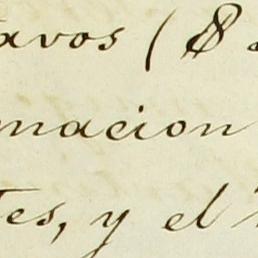 avos ($
macion
tes, y el